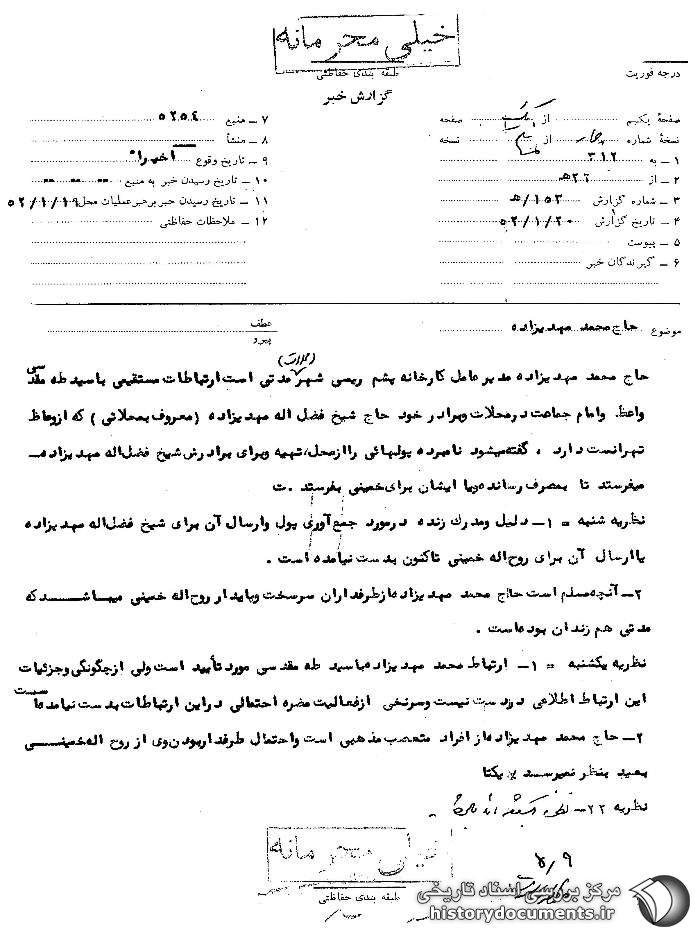 خیلی محرمانه
طبقه بندی حفاظتی
درجه فوریت
گزارش خبر
صفحهٔ یکم از یک صفحه
نسخهٔ شماره چهار از نسخه
۱ ـ به ۳۱۲
۲ ـ از ۲۲ هـ
۳ ـ شماره گزارش ۱۵۳/هـ
۴ ـ تاریخ گزارش ۵۲/۱/۲۰
۵ ـ پیوست
۶ ـ گیرندگان خبر
۷ ـ منبع ۵۲۵۴
۸ ـ منشأ
۹ ـ تاریخ وقوع اخیراً
۱۰ ـ تاریخ رسیدن خبر به منبع
۱۱ ـ تاریخ رسیدن خبر برهبر عملیات محل ۵۲/۱/۱۹
۱۲ ـ ملاحظات حفاظتی
موضوع حاج محمد مهدیزاده
عطف
پیرو
(محلات)
حاج محمد مهدیزاده مدیرعامل کارخانه پشم ریسی شهر مدتی است ارتباطات مستقیمی با سید طه مقدسی
واعظ و امام جماعت در محلات و برادر خود حاج شیخ فضل اله مهدیزاده (معروف بمحلاتی) که از وعاظ
تهرانست دارد ، گفته میشود نامبرده پولهائی را از محل، تهیه و برای برادرش شیخ فضل اله مهدیزاده ـ
میفرستد تا بمصرف رسانده و یا ایشان برای خمینی بفرستد .ت
نظریه شنبه = ۱ـ دلیل و مدرک زنده در مورد جمع آوری پول و ارسال آن برای شیخ فضل اله مهدیزاده
یا ارسال آن برای روح اله خمینی تاکنون بدست نیامده است .
۲ـ آنچه مسلم است حاج محمد مهدیزاده از طرفداران سرسخت و پایدار روح اله خمینی میباشد که
مدتی هم زندان بوده است .
نظریه یکشنبه = ۱ـ ارتباط محمد مهدیزاده با سید طه مقدسی مورد تأیید است ولی از چگونگی و جزئیات
این ارتباط اطلاعی در دست نیست و سرنخی از فعالیت مضره احتمالی در این ارتباطات بدست نیامده است
۲ـ حاج محمد مهدیزاده از افراد متعصب مذهبی است و احتمال طرفدار بودن وی از روح اله خمینی
بعید بنظر نمیرسد . یکتا
نظریه ۲۲ـ نظریه یکشنبه
خیلی محرمانه
طبقه بندی حفاظتی
۵/۹
مرکز بررسی اسناد تاریخی
historydocuments.ir